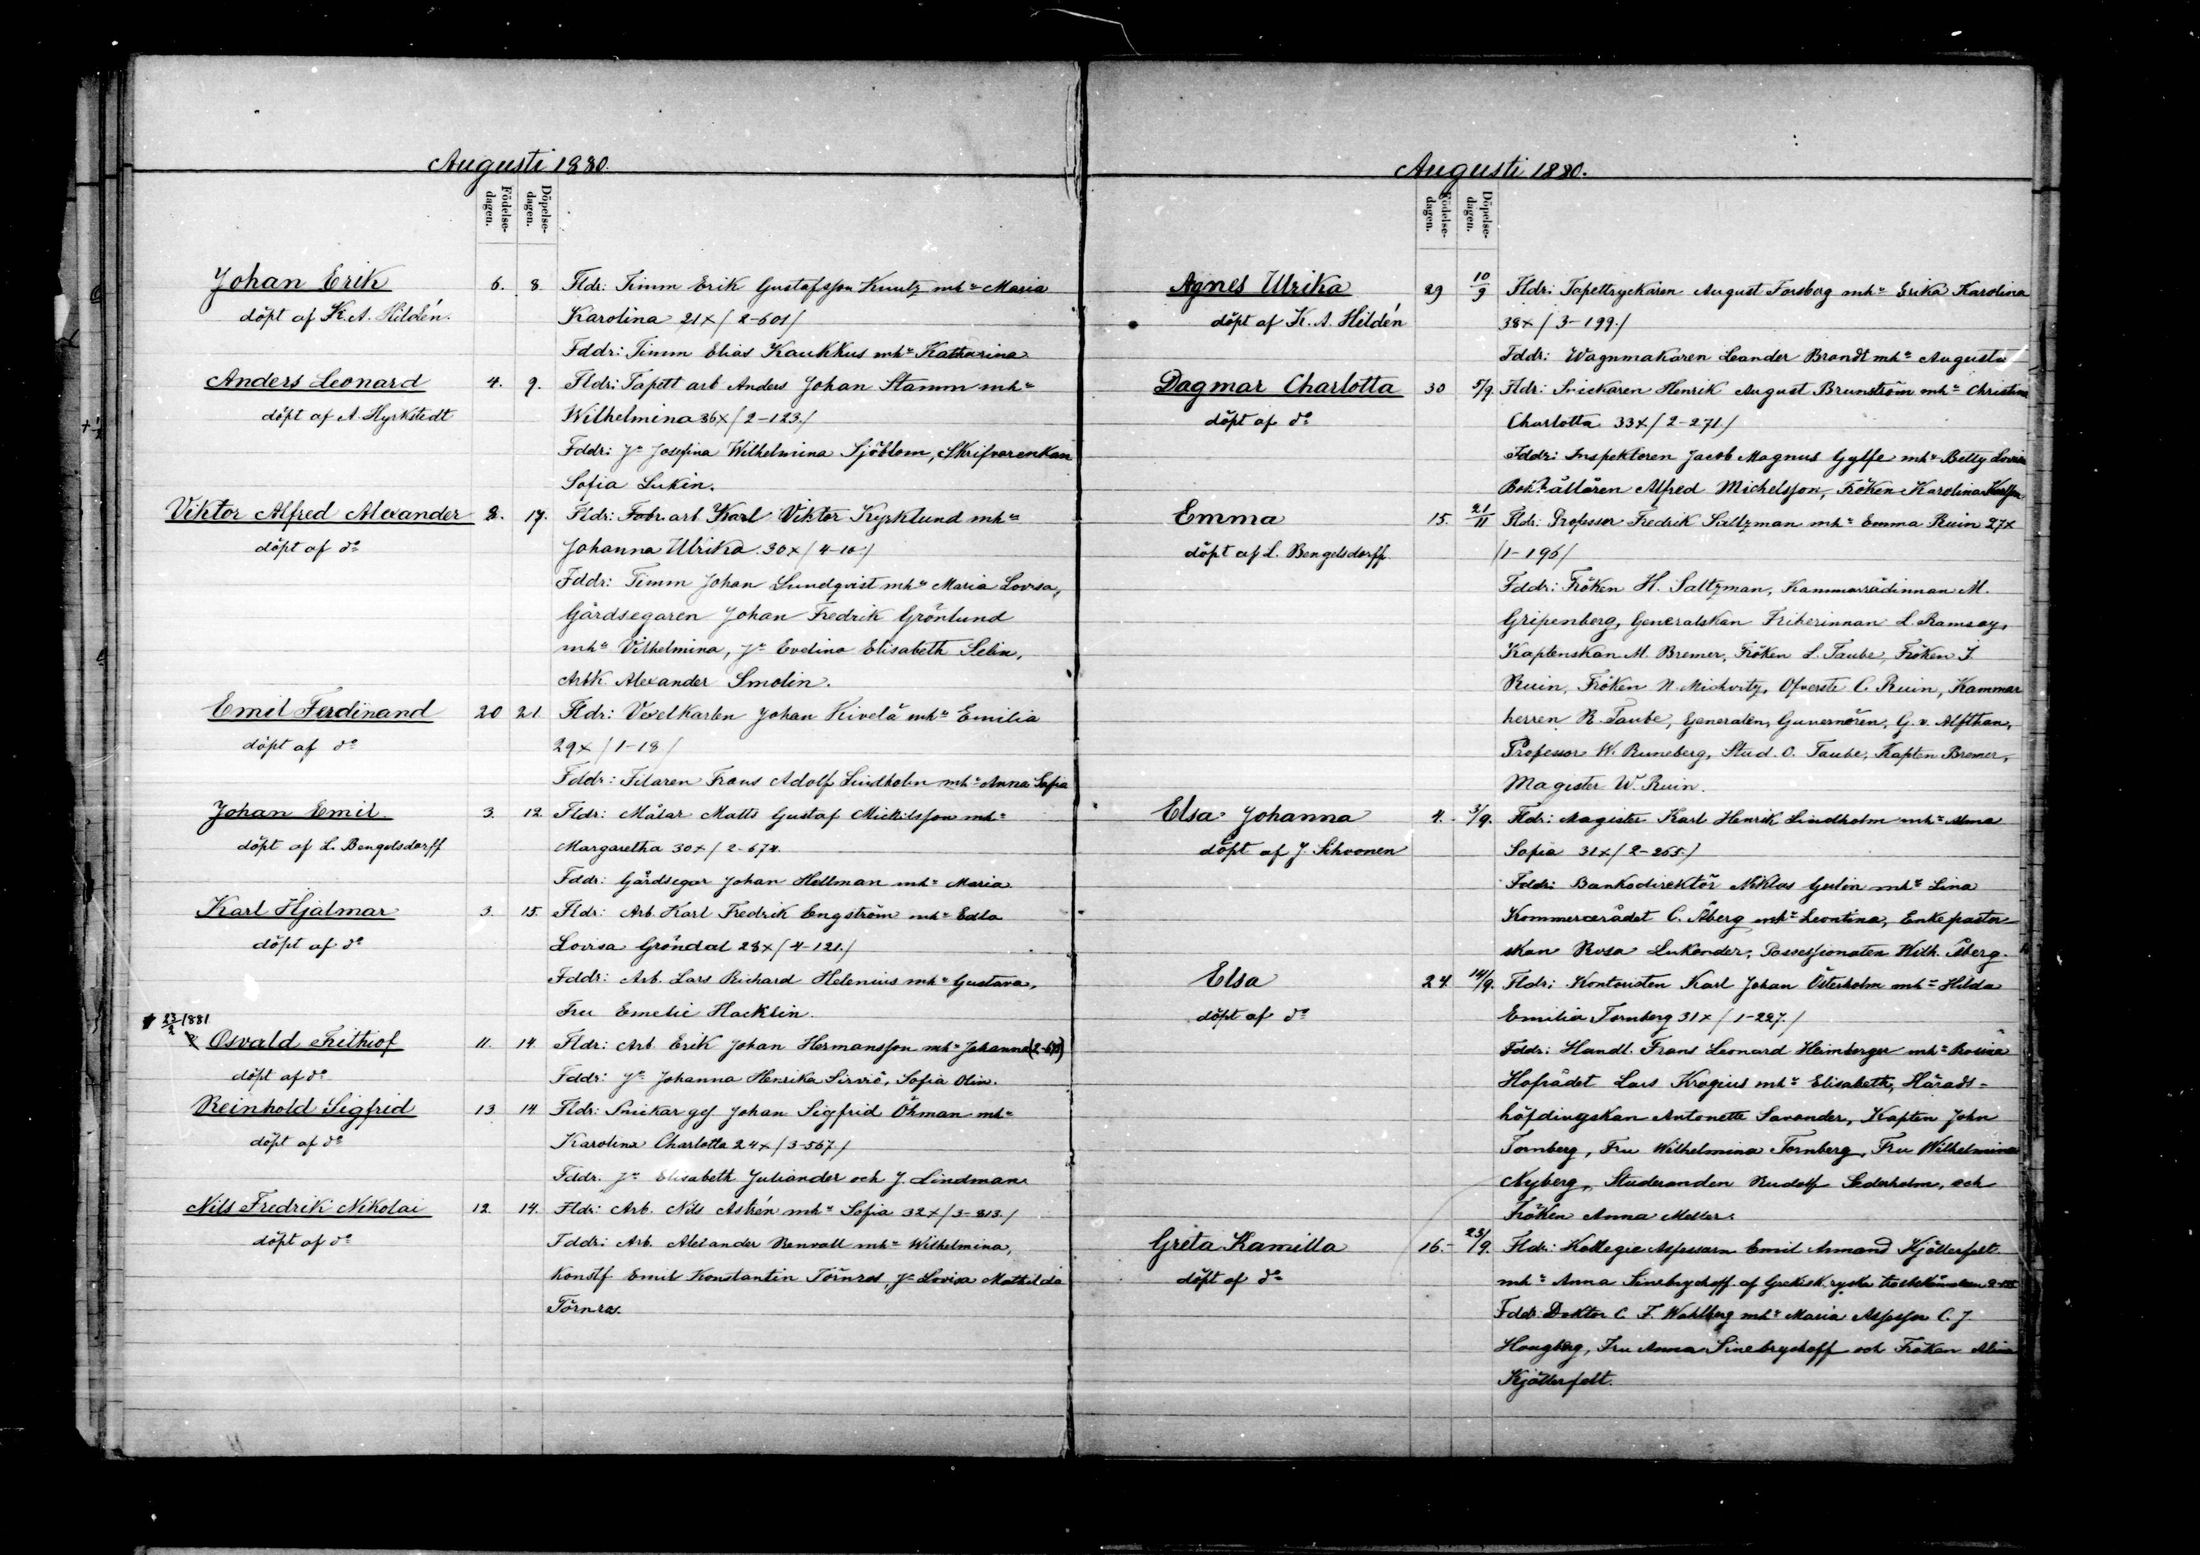 Augusti 1880.
Födelse-dagen.
Döpelse-dagen.
Johan Erik 6. 8. Fldr: Timm Erik Gustafsson Kuutz mhu Maria
döpt af K. A. Hildén. Karolina 21x/2-601/
Fddr: Timm Elias Kaukkus mhu Katharina
Anders Leonard 4. 9. Fldr: Tapett arb Anders Johan Stamm mhu
döpt af A. Hyrkstedt Wilhelmina 36x/2-123./
Fddr: Jn Josefina Wilhelmina Sjöblom, Skrifvarenkan
Sofia Lukin.
Viktor Alfred Alexander 8. 17. Fldr: Fabr. arb Karl Viktor Kyrklund mhu
döpt af do Johanna Ulrika 30x/4-10./
Fddr: Timm Johan Lundqvist mhu Maria Lovisa,
Gårdsegaren Johan Fredrik Grönlund
mhu Vilhelmina, Jn Evelina Elisabeth Selin,
Arbk. Alexander Smolin.
Emil Ferdinand 20 21. Fldr: Vexelkarlen Johan Kivelä mhu Emilia
döpt af do 29x/1-18/
Fddr: Filaren Frans Adolf Lindholm mhu Anna Sofia
Johan Emil 3. 12. Fldr: Målar Matts Gustaf Mickelsson mhu
döpt af L. Bengelsdorff Margaretha 30x/2-674.
Fddr: Gårdsegar Johan Hellman mhu Maria
Karl Hjalmar 3. 15. Fldr: Arb. Karl Fredrik Engström mhu Edla
döpt af do Lovisa Gröndal 28x/4-121./
Fddr: Arb. Lars Richard Helenius mhu Gustava,
Fru Emelie Hacklin.
23/2 1881
Osvald Frithiof 11. 14. Fldr: Arb. Erik Johan Hermansson mhu Johanna
döpt af do Fddr: Jn Johanna Henrika Sirviö, Sofia Olin.
Reinhold Sigfrid 13 14 Fldr: Snickar ges Johan Sigfrid Öhman mhu
döpt af do Karolina Charlotta 24x/3-567/
Fddr. Jn Elisabeth Juliander och J. Lindman.
Nils Fredrik Nikolai 12. 14. Fldr: Arb. Nils Astrén mhu Sofia 32x/3-813./
döpt af do Fddr: Arb. Alexander Renvall mhu Wilhelmina,
Konstf Emil Konstantin Törnros, Jn Lovisa Mathilda
Törnros.
Augusti 1880.
Födelse-dagen.
Döpelse-dagen.
Agnes Ulrika 29 10/9 Fldr: Tapettryckaren August Forsberg mhu Erika Karolina
döpt af K. A. Hildén 38x/3-199./
Fddr: Wagnmakaren Leander Brandt mhu Augusta
Dagmar Charlotta 30 5/9. Fldr: Snickaren Henrik August Brunström mhu Christina
döpt af do Charlotta 33x/2-271./
Fddr: Inspektoren Jacob Magnus Gylfe mhu Betty Lovisa
Bokhållaren Alfred Michelsson, Fröken Karolina
Emma 15. 21/11 Fldr: Professor Fredrik Saltzman mhu Emma Ruin 27x
döpt af L. Bengelsdorff. /1-196/
Fddr: Fröken H. Saltzman, Kammarrådinnan M.
Gripenberg, Generalskan Friherinnan L. Ramsay,
Kaptenskan M. Bremer, Fröken L. Taube, Fröken I.
Ruin, Fröken N. Mickvitz, Öfverste C. Ruin, Kammar
herren R. Taube, Generalen, Guvernören, G. v. Alfthan,
Professor W. Runeberg, Stud. O. Taube, Kapten Bremer,
Magister W. Ruin.
Elsa Johanna 4. 3/9. Fldr: Magister Karl Henrik Lindholm mhu Alma
döpt af J. Sihvonen Sofia 31x/2-265./
Fddr: Bankodirektör Niklas Gulin mhu Lina
Kommercerådet C. Åberg mhu Leontina, Enkepastor-
skan Rosa Lukander, Possessionaten Wilh. Åberg.
Elsa 24. 14/9. Fldr: Kontoristen Karl Johan Österholm mhu Hilda
döpt af do Emilia Tornberg 31x/1-227./
Fddr: Handl. Frans Leonard Heimberger mhu Rosina
Hofrådet Lars Krogius mhu Elisabeth, Härads-
höfdingskan Antonette Savander, Kapten John
Tornberg, Fru Wilhelmina Tornberg, Fru Wilhelmina
Nyberg, Studeranden Rudolf Sederholm, och
Fröken Anna Meller.
Greta Kamilla 16. 23/9. Fldr: Kollegie Assessorn Emil Armand Kjöllerfelt
döpt af do mhu Anna Sinebrychoff af Grekisk ryska
Fddr: Doktor C. F. Wahlberg mhu Maria Assessor C. J.
Hougberg, Fru Anna Sinebrychoff och Fröken Alina
Kjöllerfelt.